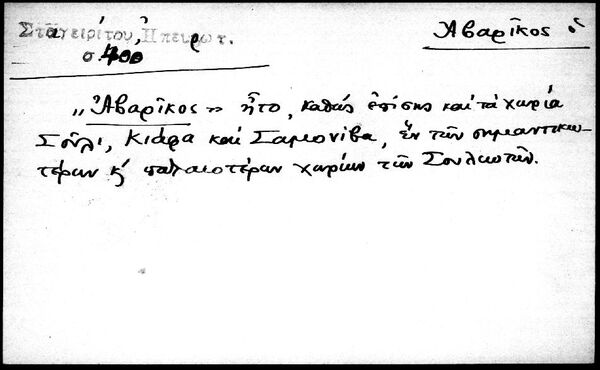 Σταγειρίτου, Ηπειρωτ.
σ. 400
Ἀβαρῖκος ὁ
„Ἀβαρῖκος" ἦτο, καθὼς ἐπίσης καὶ τὰ χωρία
Σοῦλι, Κιάφα καὶ Σαμονίβα, ἓν τῶν σημαντικω-
τέρων κ' παλαιοτέρων χωρίων τῶν Σουλιωτῶν.